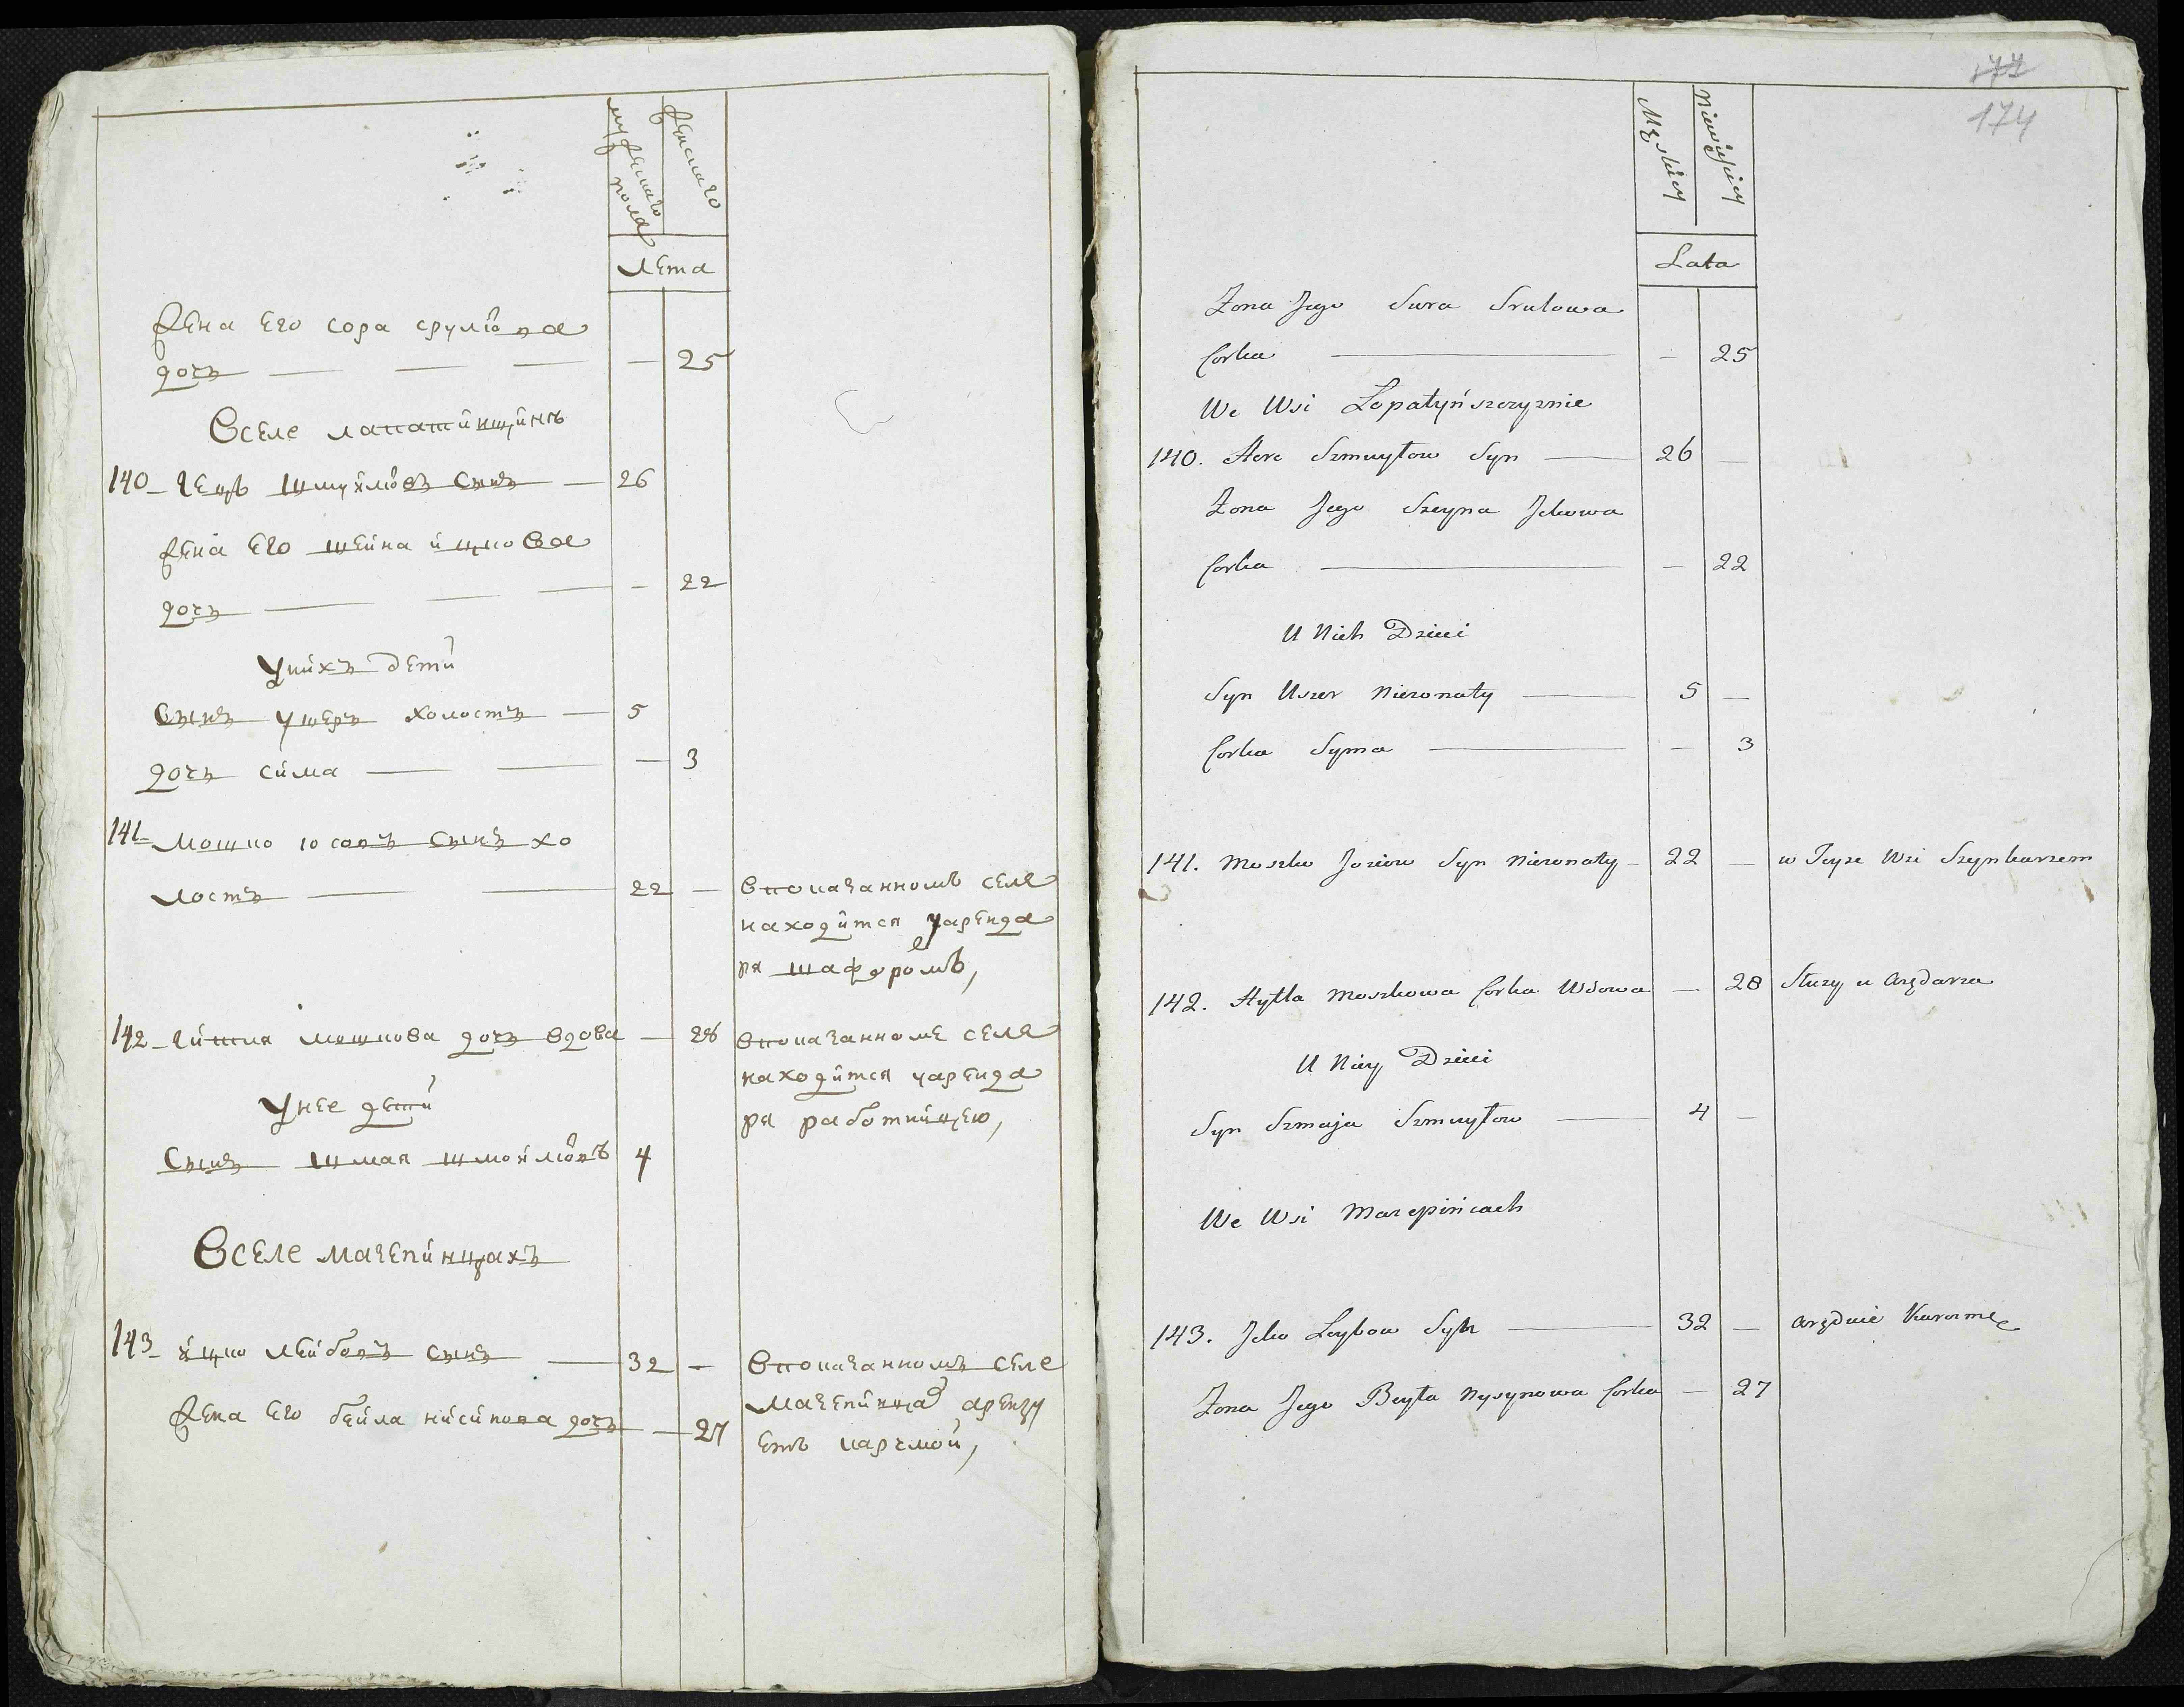 мужескаго пола
женскаго
лета
жена его сора срулiова
дочь — — — — 25
Вселе лапатинщинѣ
140 - герць шмуйлiовъ сынъ — 26
жена его шейна ицкова
дочь — — — — 22
унихъ дети
Сынъ ушеръ холостъ — 5
дочь сима — — — 3
141 - мошко iосювъ сынъ хо
лостъ — — 22 —
впоказанномъ селе
находится уаренда
ря шафером,
142 - гитля мошкова дочь вдова — 28
впоказанноме селе
находится уаренда
ря работницею,
унее дети
Сынъ шмая шмойлiовъ 4
Вселе мазепинцахъ
143 - ицко лейбовъ сынъ — 32 —
впоказанномъ селе
жена его бейла нисинова дочь — 27
мазепинца аренду
етъ карчмой,
177
174
Męskiey
Niewieskiey
Lata
Żona Jego Sura Srulowa
Corka — — 25
We Wsi Łopatyńszczyznie
140. Herc Szmuyłow Syn — 26 —
Żona Jego Szeyna Jckowa
Corka — — 22
U Nich Dzieci
Syn Uszer Nieżonaty — 5 —
Corka Syma — — 3
141. Moszko Josiow Syn Nieżonaty - 22 — w Teyże Wsi Szynkarzem
142. Hytla Moszkowa Corka Wdowa — 28 Służy u Arędarza
U Niey Dzieci
Syn Szmaja Szmuyłow — 4 —
We Wsi Mazepińcach
143. Jcko Leybow Syn — 32 — Aręduie Karczmę
Żona Jego Beyła Nysynowa Corka — 27